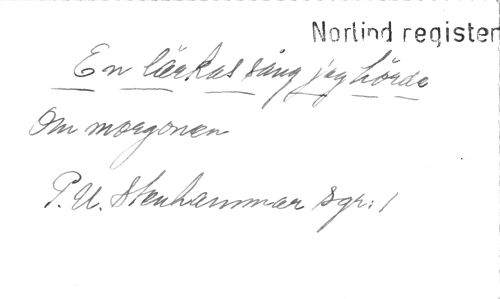 Norlind register
En lärkas sång jag hörde
Om morgonen
P. U. Stenhammar Sgr: 1